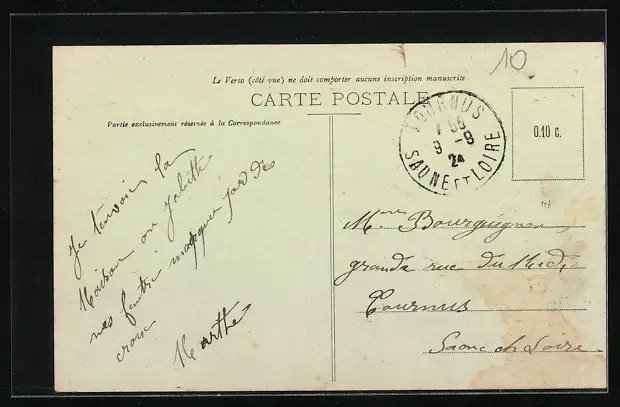 10
Le Verso (côté vue) ne doit comporter aucune inscription manuscrite
CARTE POSTALE
Partie exclusivement réservée à la Correspondance
TOURNUS
7 55
9 - 8
24
SAONE ET LOIRE
0.10 c.
Je t'envoie la
Maison ou j'habite
mes fenêtre marquer par des
croix
Marthe
Mme Bourguignon
grande rue du Midi
Tournus
Saone et Loire